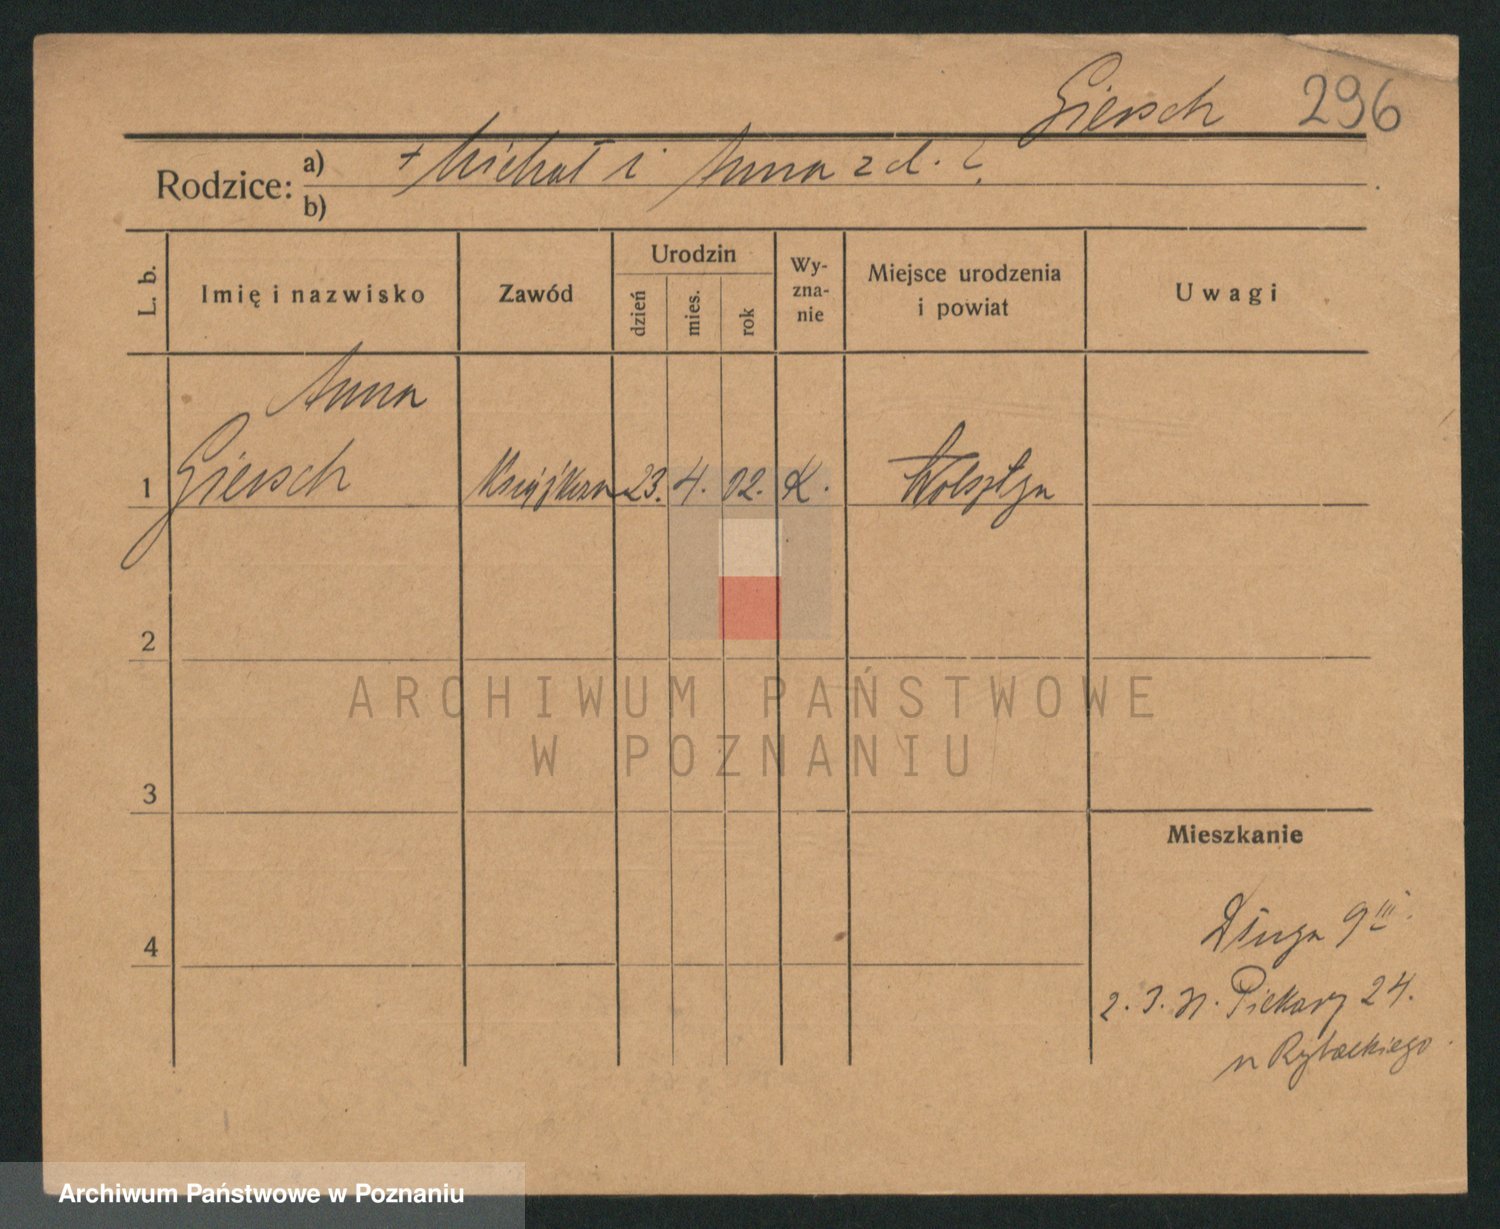 Giersch 296
Rodzice: a) + Michał i Anna z d. ?
b)
L. b.
Imię i nazwisko
Zawód
Urodzin
dzień
mies.
rok
Wy-
zna-
nie
Miejsce urodzenia
i powiat
Uwagi
Anna
1 Giersch 23. 4. 02. K. Wolsztyn
2
3
4
Mieszkanie
Długa 9 III.
Piekary 24.
u Rybackiego
ARCHIWUM PAŃSTWOWE
W POZNANIU
Archiwum Państwowe w Poznaniu